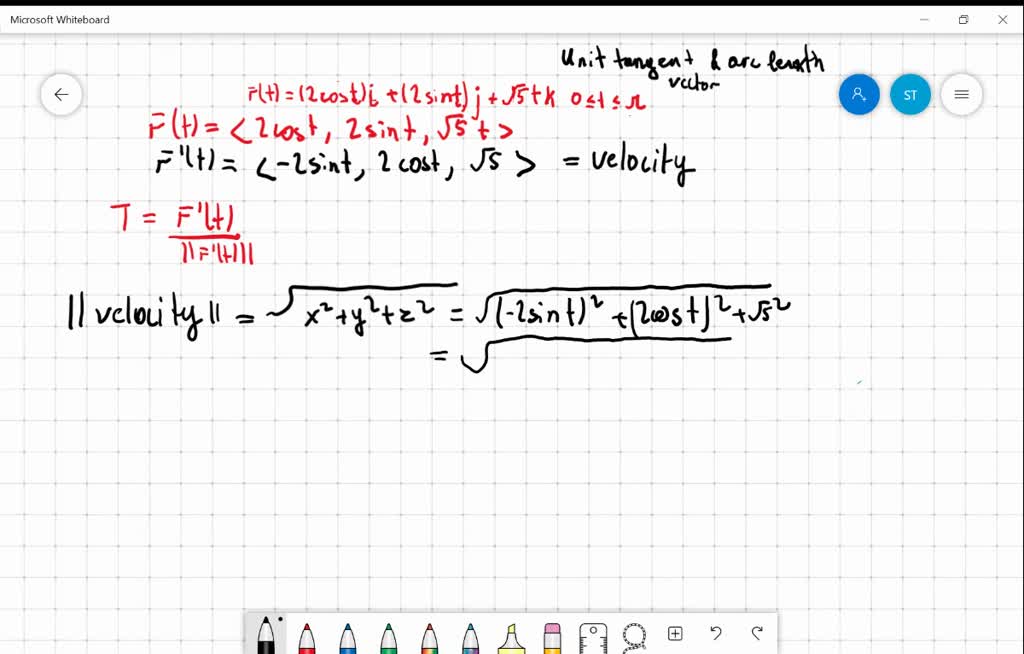 Microsoft Whiteboard
Unit tangent & arc length
vector
ST
r(t) = (2cost)i + (2sint)j + √5 t k 0 ≤ t ≤ π
r(t) = < 2cost, 2sint, √5 t >
r'(t) = < -2sint, 2cost, √5 > = velocity
T = r'(t)
||r'(t)||
|| velocity || = √x²+y²+z² = √(-2sint)² + (2cost)² + √5²
= √